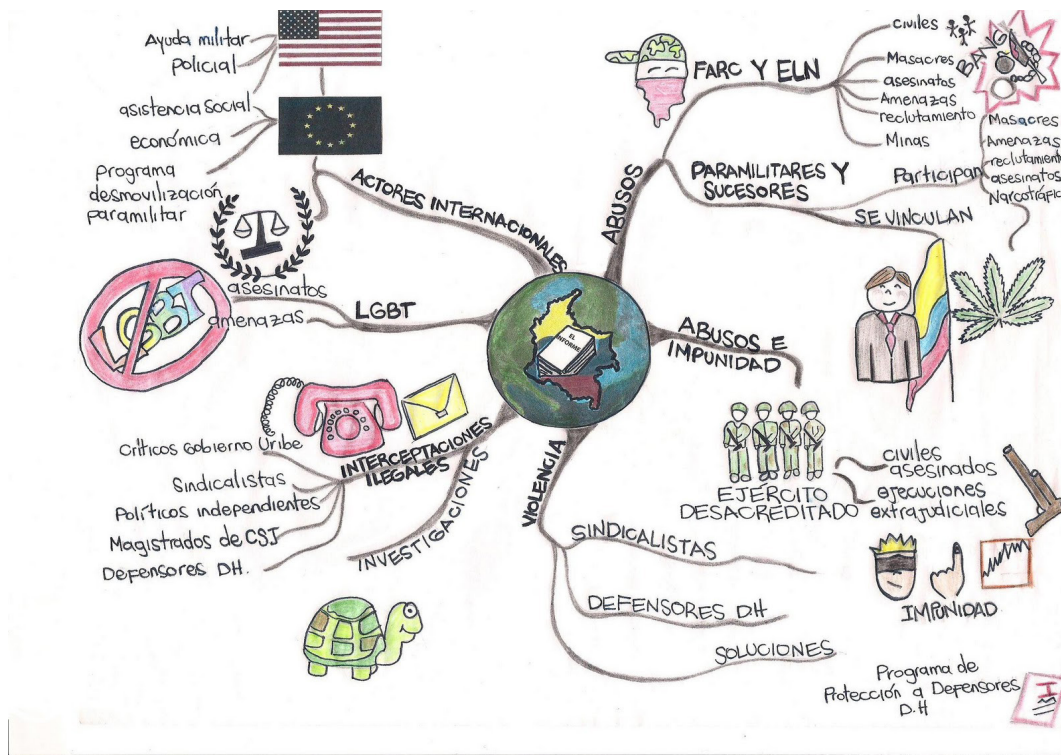 Ayuda militar
policial
asistencia social
económica
programa
desmovilización
paramilitar
ACTORES INTERNACIONALES
asesinatos
amenazas
LGBT
LGBT
Críticos Gobierno Uribe
Sindicalistas
Políticos independientes
Magistrados de CSJ
Defensores DH.
INTERCEPTACIONES
ILEGALES
INVESTIGACIONES
EL
INFORME
ABUSOS
FARC Y ELN
civiles
Masacres
asesinatos
Amenazas
reclutamiento
Minas
BANG
PARAMILITARES Y
SUCESORES
Participan
Masacres
Amenazas
reclutamiento
asesinatos
Narcotráfico
SE VINCULAN
ABUSOS E
IMPUNIDAD
EJÉRCITO
DESACREDITADO
civiles
asesinados
ejecuciones
extrajudiciales
VIOLENCIA
SINDICALISTAS
IMPUNIDAD
DEFENSORES DH
SOLUCIONES
Programa de
Protección a Defensores
D.H